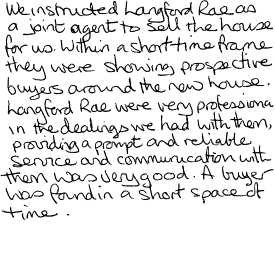 We instructed Langford Rae as
a joint agent to sell the house
for us. Within a short time frame
they were showing prospective
buyers around the new house.
Langford Rae were very professiona
in the dealings we had with them,
providing a prompt and reliable
service and communication with
them was very good. A buyer
was found in a short space of
time.